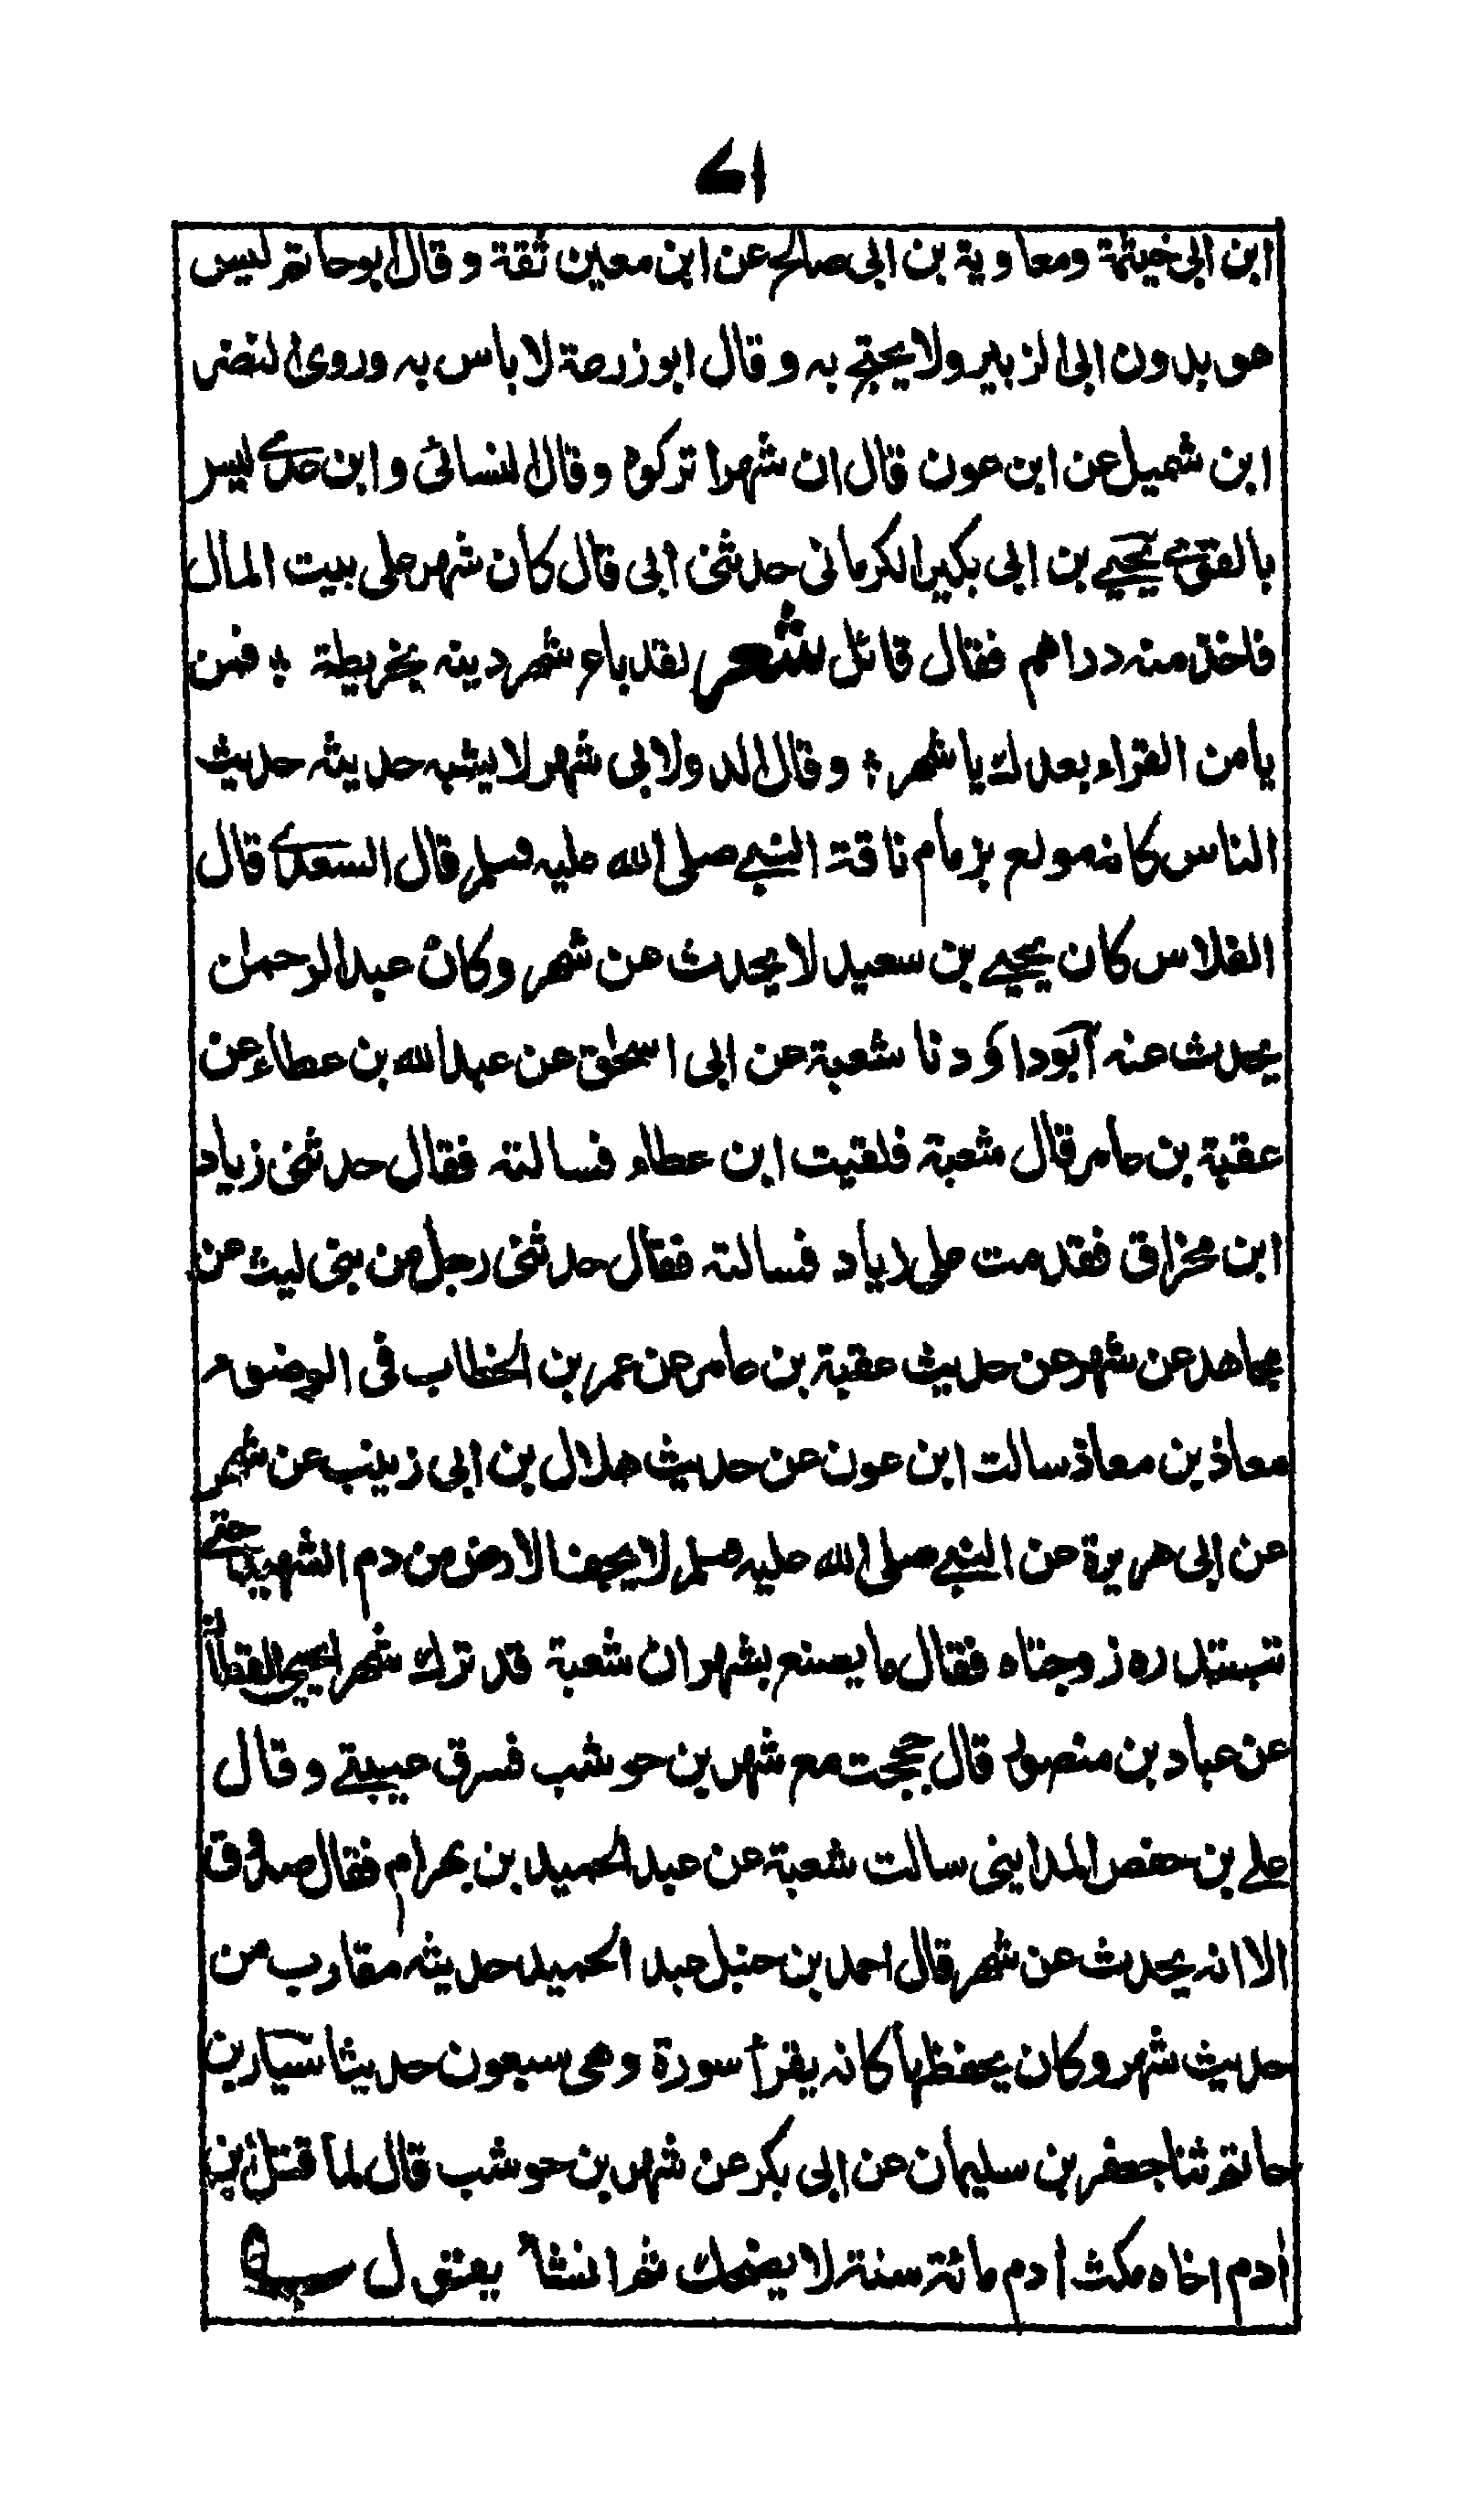 ۷۱
ابن ابی خیثمة ومعاوية بن ابی صالح عن ابن معین ثقة وقال ابو حاتم لیس
هو بدون ابی الزبیر ولا یحتج به وقال ابو زرعة لا باس به وروی النضر
ابن شمیل عن ابن عون قال ان شهرا ترکوه وقال النسائی وابن عدی لیس
بالقوی یحیی بن ابی بکیر الکرمانی حدثنی ابی قال کان شهر علی بیت المال
فاخذ منه دراهم فقال قائل شعر لقد باع شهر دینه بخریطة ؛ فمن
یامن القراء بعدك یا شهر ؛ وقال الدولابی شهر لا یشبه حدیثه حدیث
الناس کانه مولع بزمام ناقة النبی صلی الله علیه وسلم قال السعدی قال
الفلاس کان یحیی بن سعید لا یحدث عن شهر وکان عبدالرحمن
یحدث عنه ابو داؤد نا شعبة عن ابی اسحٰق عن عبدالله بن عطاء عن
عقبة بن عامر قال شعبة فلقیت ابن عطاء فسالته فقال حدثنی زیاد
ابن مخراق فقدمت علی زیاد فسالته فقال حدثنی رجل من بنی لیث عن
مجاهد عن شهر عن حدیث عقبة بن عامر عن عمر بن الخطاب فی الوضوء
معاذ بن معاذ سالت ابن عون عن حدیث هلال بن ابی زینب عن شهر
عن ابی هریرة عن النبی صلی الله علیه وسلم لا یجف الارض من دم الشهید حتی
تبتدره زوجتاه فقال ما یصنع بشهر ان شعبة قد ترك شهرا یحیی القطان
عن عباد بن منصور قال حججت مع شهر بن حوشب فسرق عیبتی وقال
علی بن حفص المداینی سالت شعبة عن عبد الحمید بن بهرام فقال صدوق
الا انه یحدث عن شهر قال احمد بن حنبل عبد الحمید حدیثه مقارب من
حدیث شهر وکان یحفظها کانه یقرأ سورة وهی سبعون حدیثا سیار بن
حاتم ثنا جعفر بن سلیمان عن ابی بکر عن شهر بن حوشب قال لما قتل ابن
اٰدم اخاه مکث اٰدم مائة سنة لا یضحك ثم انشا یقول